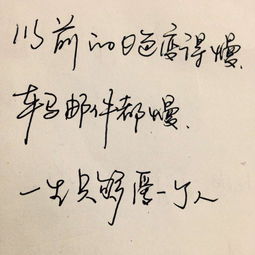 从前的日色变得慢、
车马邮件都慢、
一生只够爱一个人